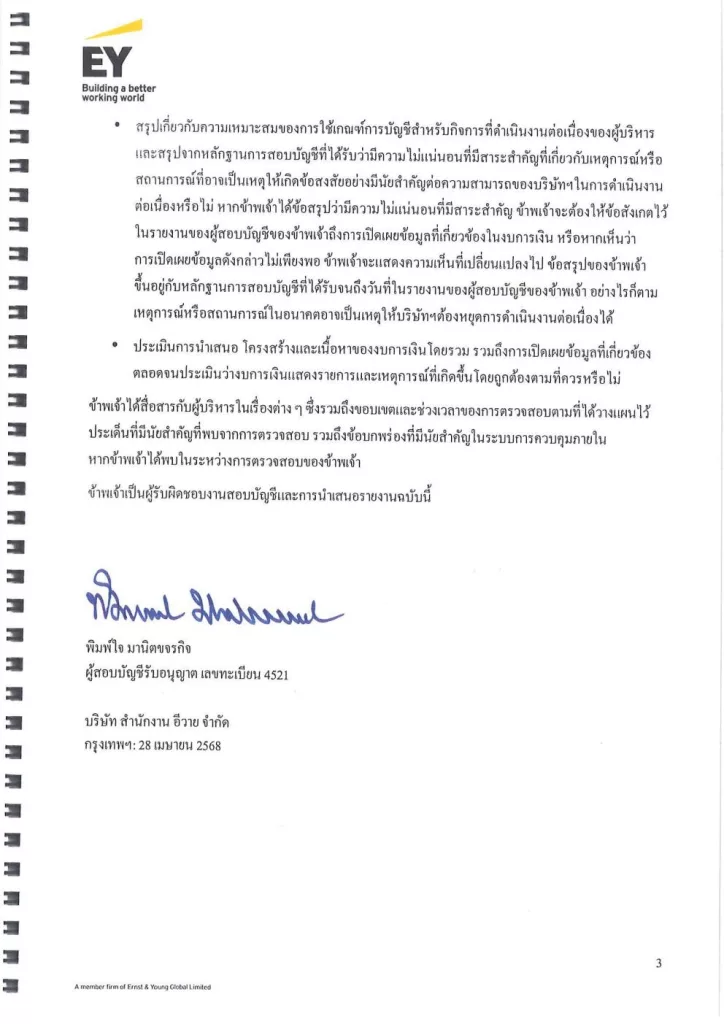 EY
Building a better
working world
• สรุปเกี่ยวกับความเหมาะสมของการใช้เกณฑ์การบัญชีสำหรับกิจการที่ดำเนินงานต่อเนื่องของผู้บริหาร
และสรุปจากหลักฐานการสอบบัญชีที่ได้รับว่ามีความไม่แน่นอนที่มีสาระสำคัญที่เกี่ยวกับเหตุการณ์หรือ
สถานการณ์ที่อาจเป็นเหตุให้เกิดข้อสงสัยอย่างมีนัยสำคัญต่อความสามารถของบริษัทฯในการดำเนินงาน
ต่อเนื่องหรือไม่ หากข้าพเจ้าได้ข้อสรุปว่ามีความไม่แน่นอนที่มีสาระสำคัญ ข้าพเจ้าจะต้องให้ข้อสังเกตไว้
ในรายงานของผู้สอบบัญชีของข้าพเจ้าถึงการเปิดเผยข้อมูลที่เกี่ยวข้องในงบการเงิน หรือหากเห็นว่า
การเปิดเผยข้อมูลดังกล่าวไม่เพียงพอ ข้าพเจ้าจะแสดงความเห็นที่เปลี่ยนแปลงไป ข้อสรุปของข้าพเจ้า
ขึ้นอยู่กับหลักฐานการสอบบัญชีที่ได้รับจนถึงวันที่ในรายงานของผู้สอบบัญชีของข้าพเจ้า อย่างไรก็ตาม
เหตุการณ์หรือสถานการณ์ในอนาคตอาจเป็นเหตุให้บริษัทฯต้องหยุดการดำเนินงานต่อเนื่องได้
• ประเมินการนำเสนอ โครงสร้างและเนื้อหาของงบการเงินโดยรวม รวมถึงการเปิดเผยข้อมูลที่เกี่ยวข้อง
ตลอดจนประเมินว่างบการเงินแสดงรายการและเหตุการณ์ที่เกิดขึ้นโดยถูกต้องตามที่ควรหรือไม่
ข้าพเจ้าได้สื่อสารกับผู้บริหารในเรื่องต่าง ๆ ซึ่งรวมถึงขอบเขตและช่วงเวลาของการตรวจสอบตามที่ได้วางแผนไว้
ประเด็นที่มีนัยสำคัญที่พบจากการตรวจสอบ รวมถึงข้อบกพร่องที่มีนัยสำคัญในระบบการควบคุมภายใน
หากข้าพเจ้าได้พบในระหว่างการตรวจสอบของข้าพเจ้า
ข้าพเจ้าเป็นผู้รับผิดชอบงานสอบบัญชีและการนำเสนอรายงานฉบับนี้
พิมพ์ใจ มานิตขจรกิจ
ผู้สอบบัญชีรับอนุญาต เลขทะเบียน 4521
บริษัท สำนักงาน อีวาย จำกัด
กรุงเทพฯ: 28 เมษายน 2568
3
A member firm of Ernst & Young Global Limited